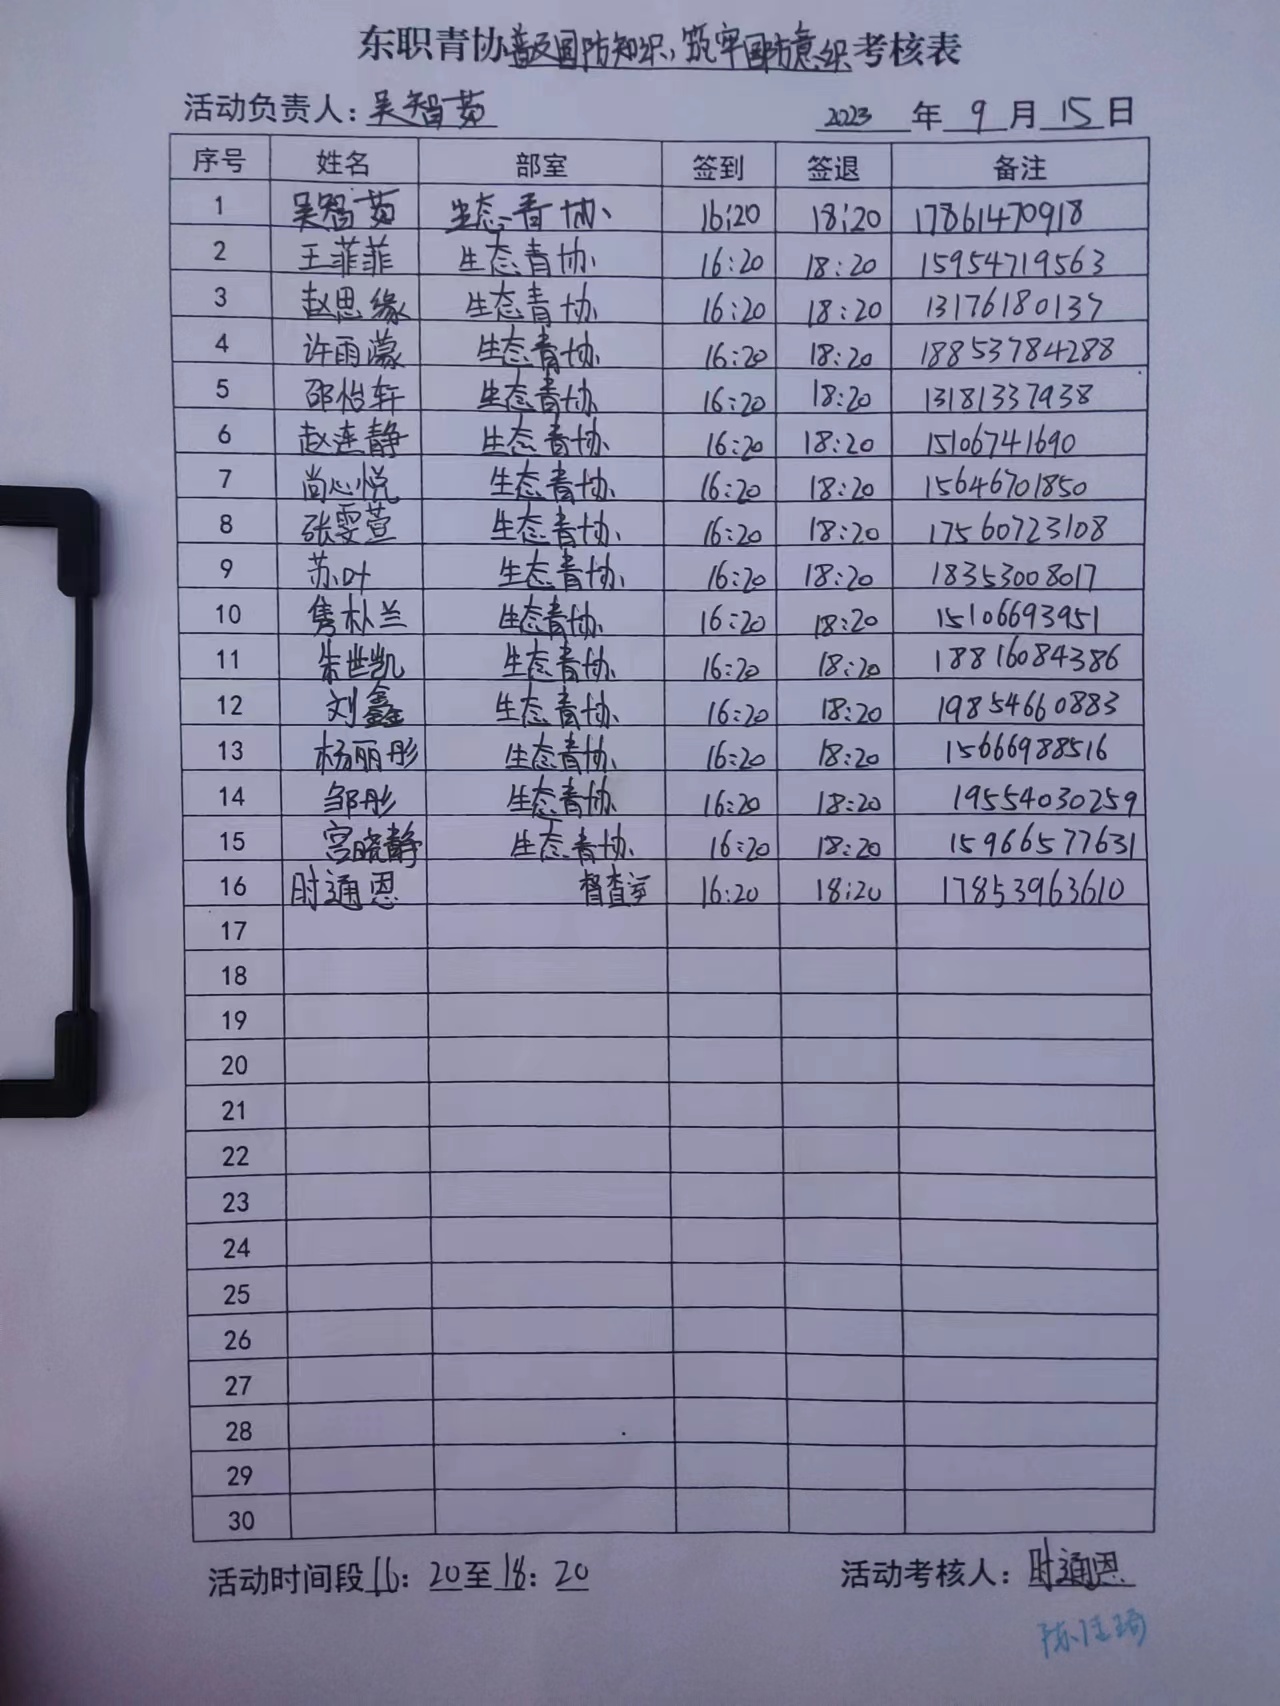 东职青协普及国防知识,筑牢国防意织考核表
活动负责人:吴智茹 2023年9月15日
序号 姓名 部室 签到 签退 备注
1 吴智茹 生态青协 16:20 18:20 17861470918
2 王菲菲 生态青协 16:20 18:20 15954719563
3 赵思缘 生态青协 16:20 18:20 13176180137
4 许雨濛 生态青协 16:20 18:20 18853784288
5 邵怡轩 生态青协 16:20 18:20 13181337938
6 赵连静 生态青协 16:20 18:20 15106741690
7 尚心悦 生态青协 16:20 18:20 15646701850
8 张雯萱 生态青协 16:20 18:20 17560723108
9 苏叶 生态青协 16:20 18:20 18353008017
10 隽朴兰 生态青协 16:20 18:20 15106693951
11 朱世凯 生态青协 16:20 18:20 18816084386
12 刘鑫 生态青协 16:20 18:20 19854660883
13 杨丽彤 生态青协 16:20 18:20 15666988516
14 邹彤 生态青协 16:20 18:20 19554030259
15 宫晓静 生态青协 16:20 18:20 15966577631
16 时通恩 督查室 16:20 18:20 17853963610
17
18
19
20
21
22
23
24
25
26
27
28
29
30
活动时间段16:20至18:20 活动考核人:时通恩
陈佳琦